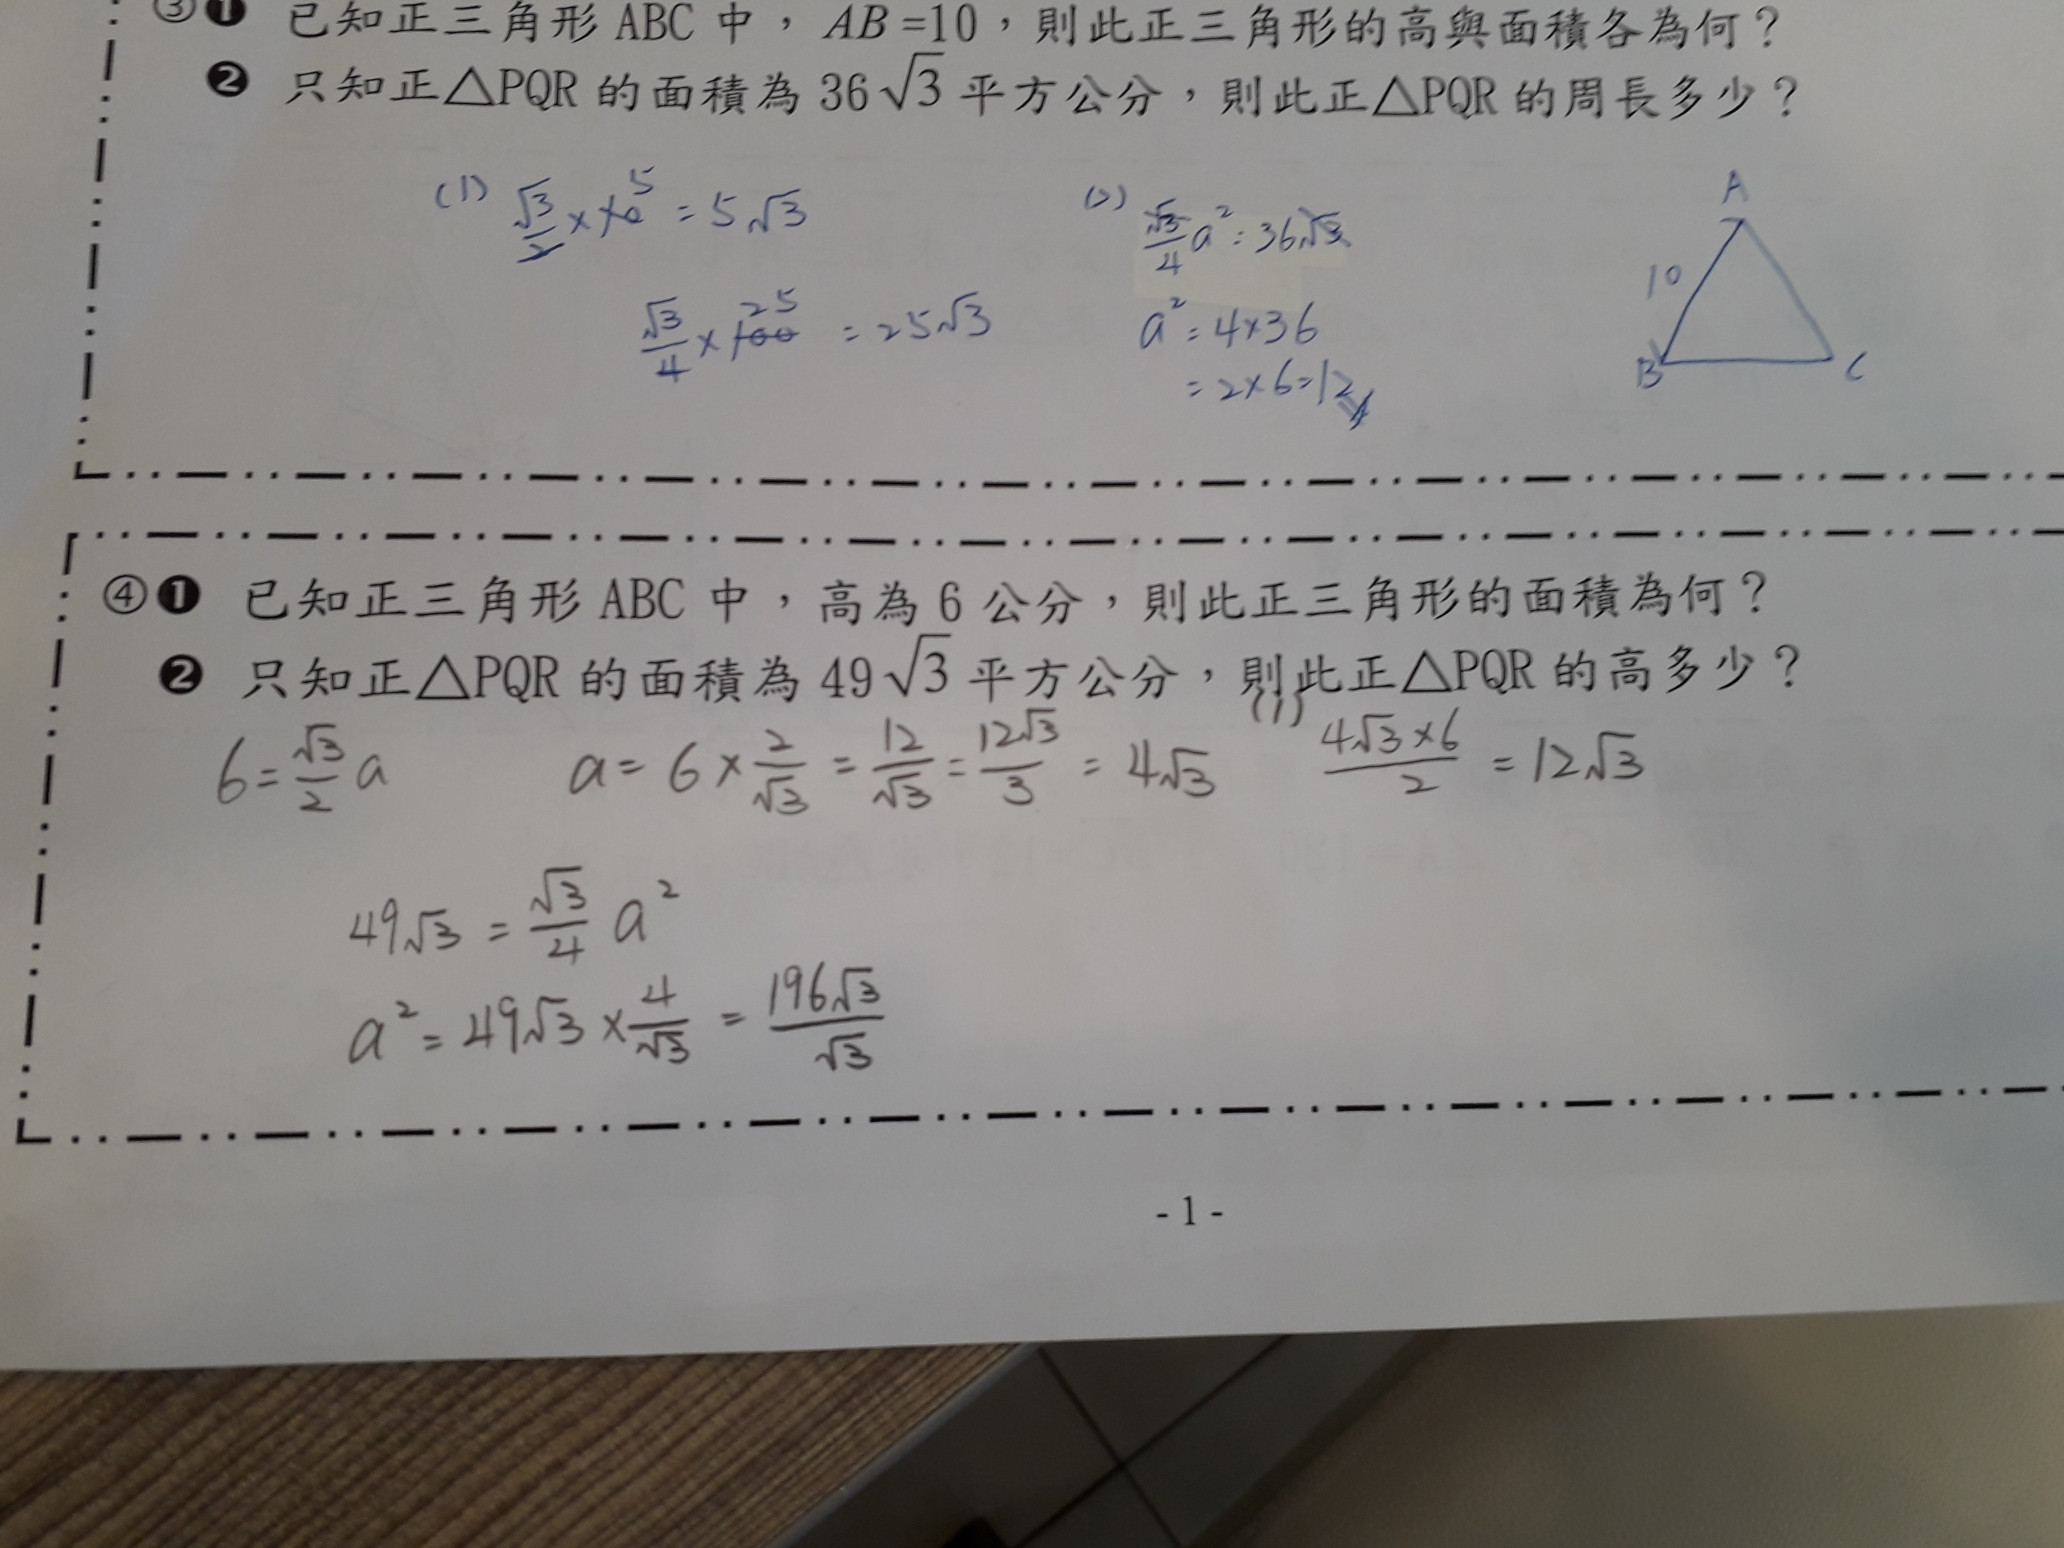 ③❶ 已知正三角形 ABC 中，AB=10，則此正三角形的高與面積各為何？
❷ 只知正△PQR 的面積為 36√3 平方公分，則此正△PQR 的周長多少？
(1) √3/2 × 10 5 = 5√3
√3/4 × 100 25 = 25√3
(2) √3/4 a² = 36√3
a² = 4×36
= 2×6=12
A
10
B C
④❶ 已知正三角形 ABC 中，高為 6 公分，則此正三角形的面積為何？
❷ 只知正△PQR 的面積為 49√3 平方公分，則此正△PQR 的高多少？
6 = √3/2 a a = 6 × 2/√3 = 12/√3 = 12√3/3 = 4√3 (1) 4√3×6/2 = 12√3
49√3 = √3/4 a²
a² = 49√3 × 4/√3 = 196√3/√3
- 1 -